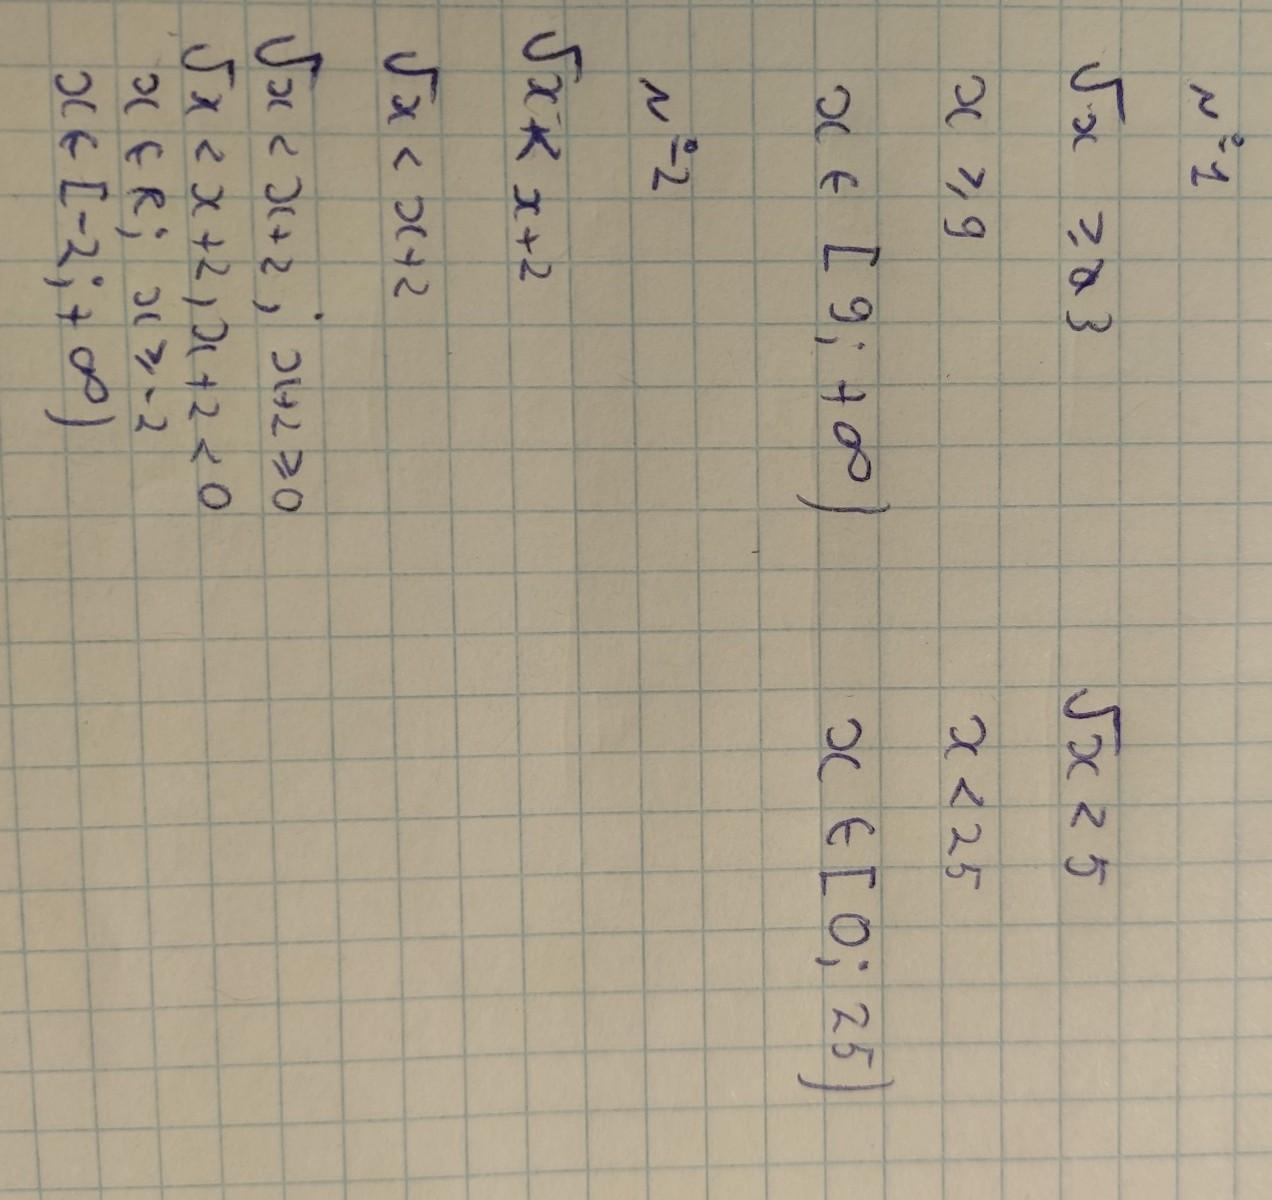 №1
√x ≥ 3
x ≥ 9
x ∈ [9; +∞)
√x < 5
x < 25
x ∈ [0; 25)
№2
√x < x+2
√x < x+2
√x < x+2, x+2 ≥ 0
√x < x+2, x+2 < 0
x ∈ R; x ≥ -2
x ∈ [-2; +∞)